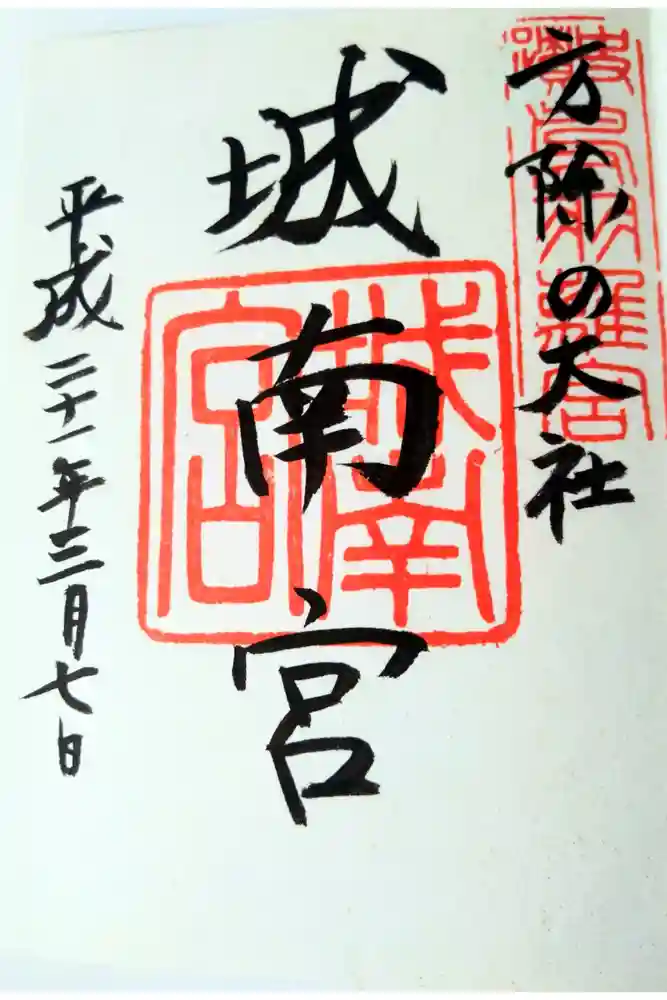 方除の大社
城南宮
城南宮
平成二十一年三月七日